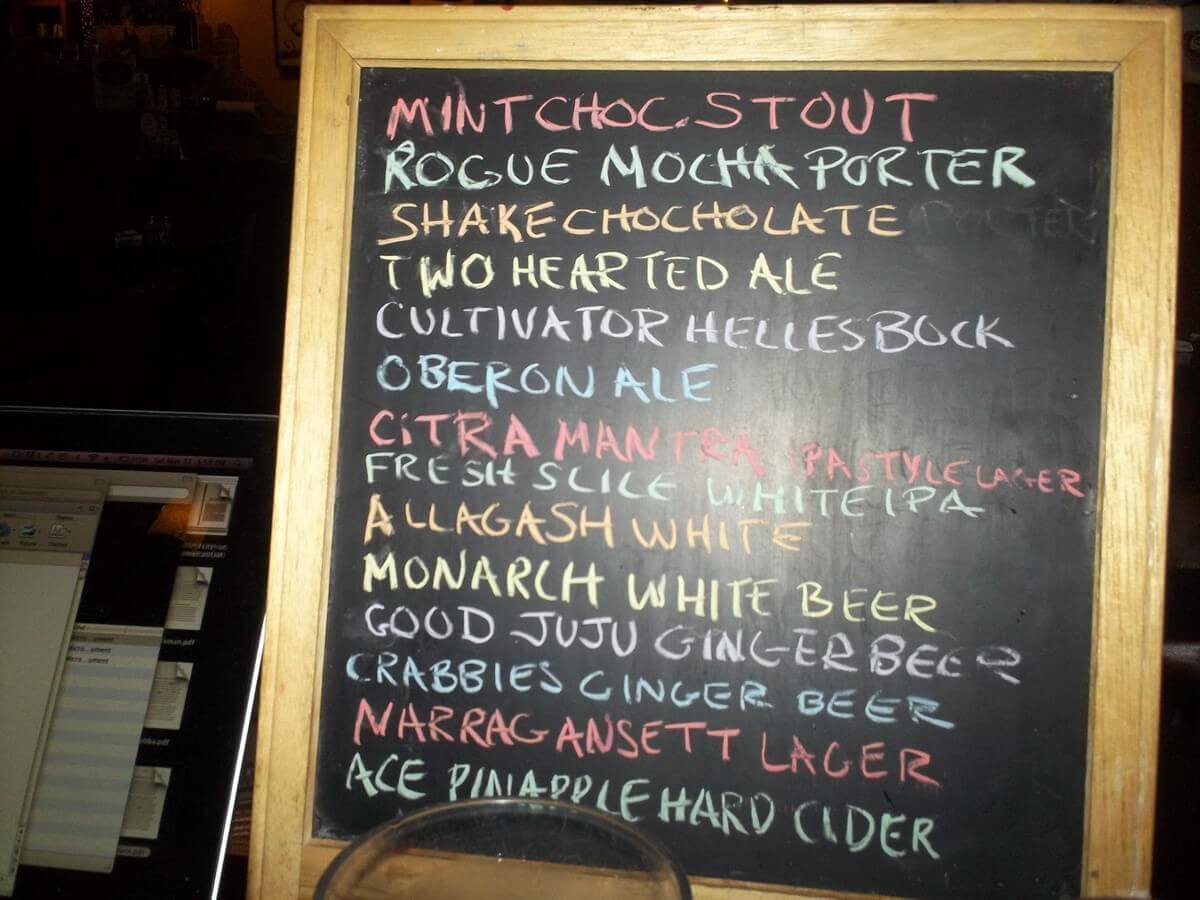 MINT CHOC. STOUT
ROGUE MOCHA PORTER
SHAKE CHOCHOLATE PORTER
TWO HEARTED ALE
CULTIVATOR HELLES BOCK
OBERON ALE
CITRA MANTRA IPA STYLE LAGER
FRESH SLICE WHITE IPA
ALLAGASH WHITE
MONARCH WHITE BEER
GOOD JUJU GINGER BEER
CRABBIES GINGER BEER
NARRAGANSETT LAGER
ACE PINAPPLE HARD CIDER